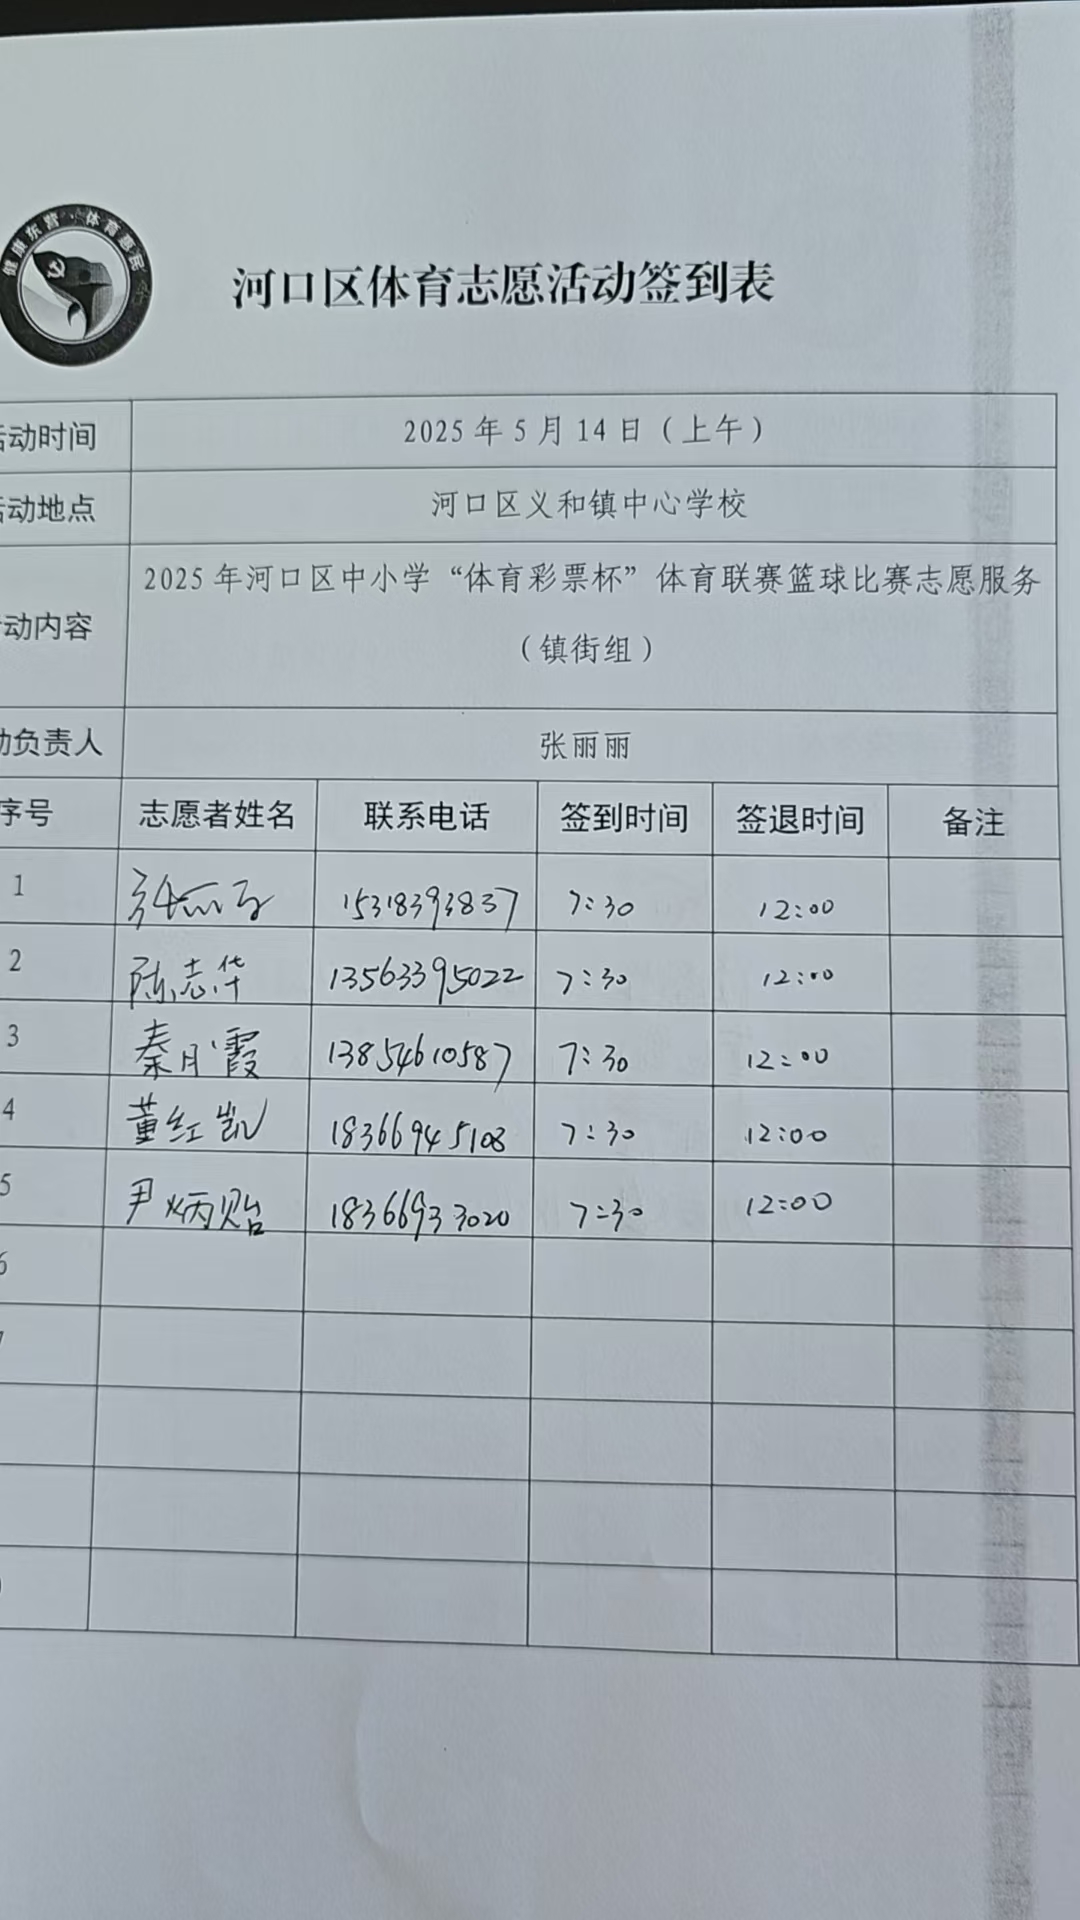 健康东营·体育惠民
河口区体育志愿活动签到表
活动时间 2025年5月14日（上午）
活动地点 河口区义和镇中心学校
活动内容 2025年河口区中小学“体育彩票杯”体育联赛篮球比赛志愿服务
（镇街组）
动负责人 张丽丽
序号 志愿者姓名 联系电话 签到时间 签退时间 备注
1 张丽丽 15318393837 7:30 12:00
2 陈志华 13563395022 7:30 12:00
3 秦月霞 13854610587 7:30 12:00
4 董红凯 18366945108 7:30 12:00
5 尹炳贻 18366933020 7:30 12:00
6
7